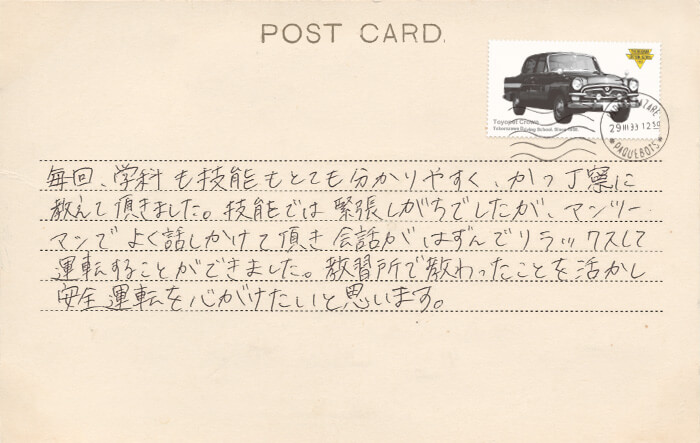 POST CARD.
Toyopet Crown
Tokorozawa Driving School. Since
29 III 33 12
PAQUEBOTS
毎回、学科も技能もとても分かりやすく、かつ丁寧に
教えて頂きました。技能では緊張しがちでしたが、マンツー
マンでよく話しかけて頂き会話がはずんでリラックスして
運転することができました。教習所で教わったことを活かし
安全運転を心がけたいと思います。